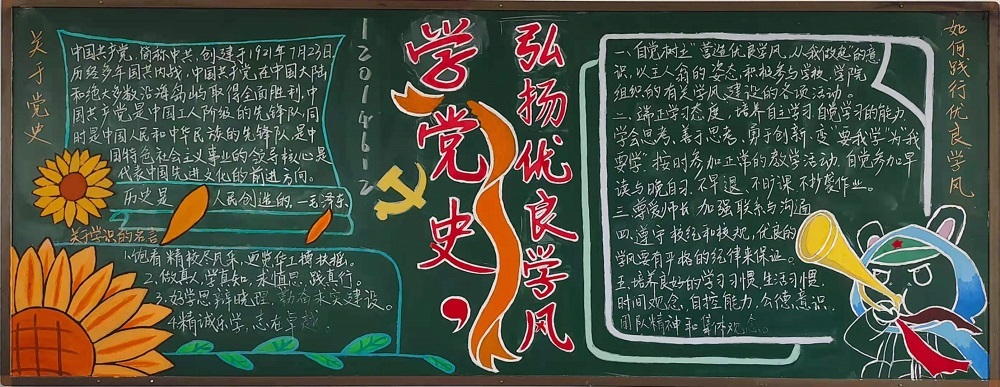 关于党史
中国共产党,简称中共,创建于1921年7月23日,
历经多年国共内战,中国共产党在中国大陆
和绝大多数沿海岛屿取得全面胜利,中
国共产党是中国工人阶级的先锋队,同
时是中国人民和中华民族的先锋队,是中
国特色社会主义事业的领导核心,是
代表中国先进文化的前进方向。
历史是 人民创造的.—毛泽东
关于学识的名言
2.做真人,学真知,求慎思,践真行。
3.好学思辩晓理,勤奋求实建设。
4.精诚乐学,志在卓越.
12014612
学党史,
弘扬优良学风
一、自觉树立"营造优良学风,从我做起"的意
识,以主人翁的姿态积极参与学校、学院
组织的有关学风建设的各项活动。
二、端正学习态度,培养自主学习自觉学习的能力
学会思考,善于思考,勇于创新,变"要我学"为"我
要学",按时参加正常的教学活动,自觉参加早
读与晚自习,不早退、不旷课不抄袭作业。
三、尊爱师长 加强联系与沟通
四、遵守校纪和校规,优良的
学风要有严格的纪律来保证。
五、培养良好的学习习惯、生活习惯
时间观念,自控能力,公德意识,
团队精神和集体观念。
如何践行优良学风